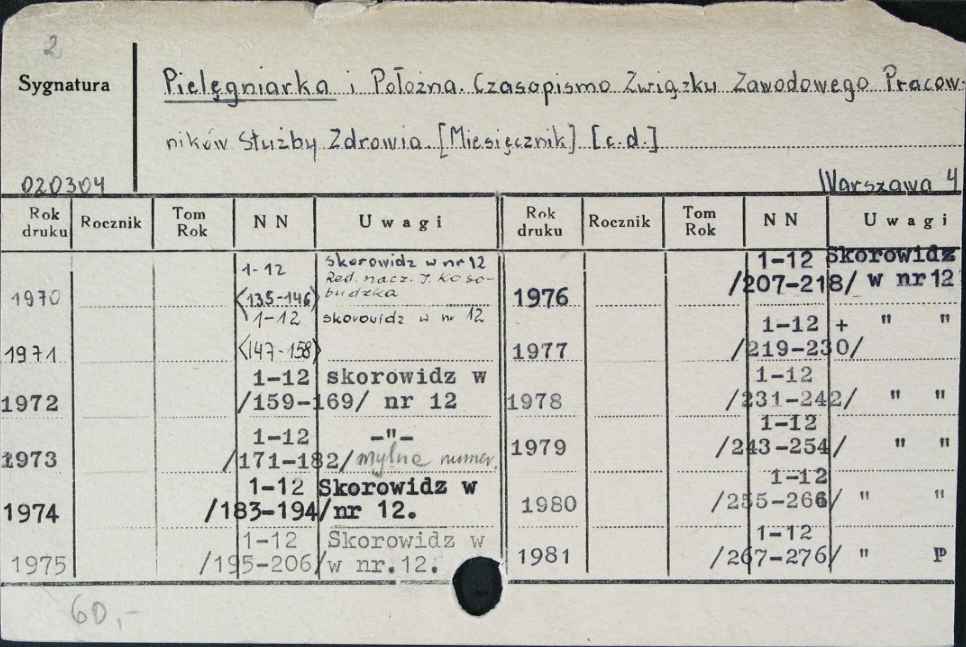 2
Sygnatura
Pielęgniarka i Położna. Czasopismo Związku Zawodowego Pracow-
ników Służby Zdrowia. [Miesięcznik] [c.d.]
020304
Warszawa 4
Rok druku Rocznik Tom Rok NN Uwagi Rok druku Rocznik Tom Rok NN Uwagi
1970 1-12 <135-146> skorowidz w nr 12 Red. nacz. J. Koso-budzka
1971 1-12 <147-158> skorowidz w nr 12
1972 1-12 /159-169/ skorowidz w nr 12
1973 1-12 /171-182/ -"- mylna numer.
1974 1-12 /183-194/ Skorowidz w nr 12.
1975 1-12 /195-206/ Skorowidz w w nr.12.
1976 1-12 /207-218/ Skorowidz w nr 12
1977 1-12 /219-230/ + " "
1978 1-12 /231-242/ " "
1979 1-12 /243-254/ " "
1980 1-12 /255-266/ " "
1981 1-12 /267-276/ " p
60,-